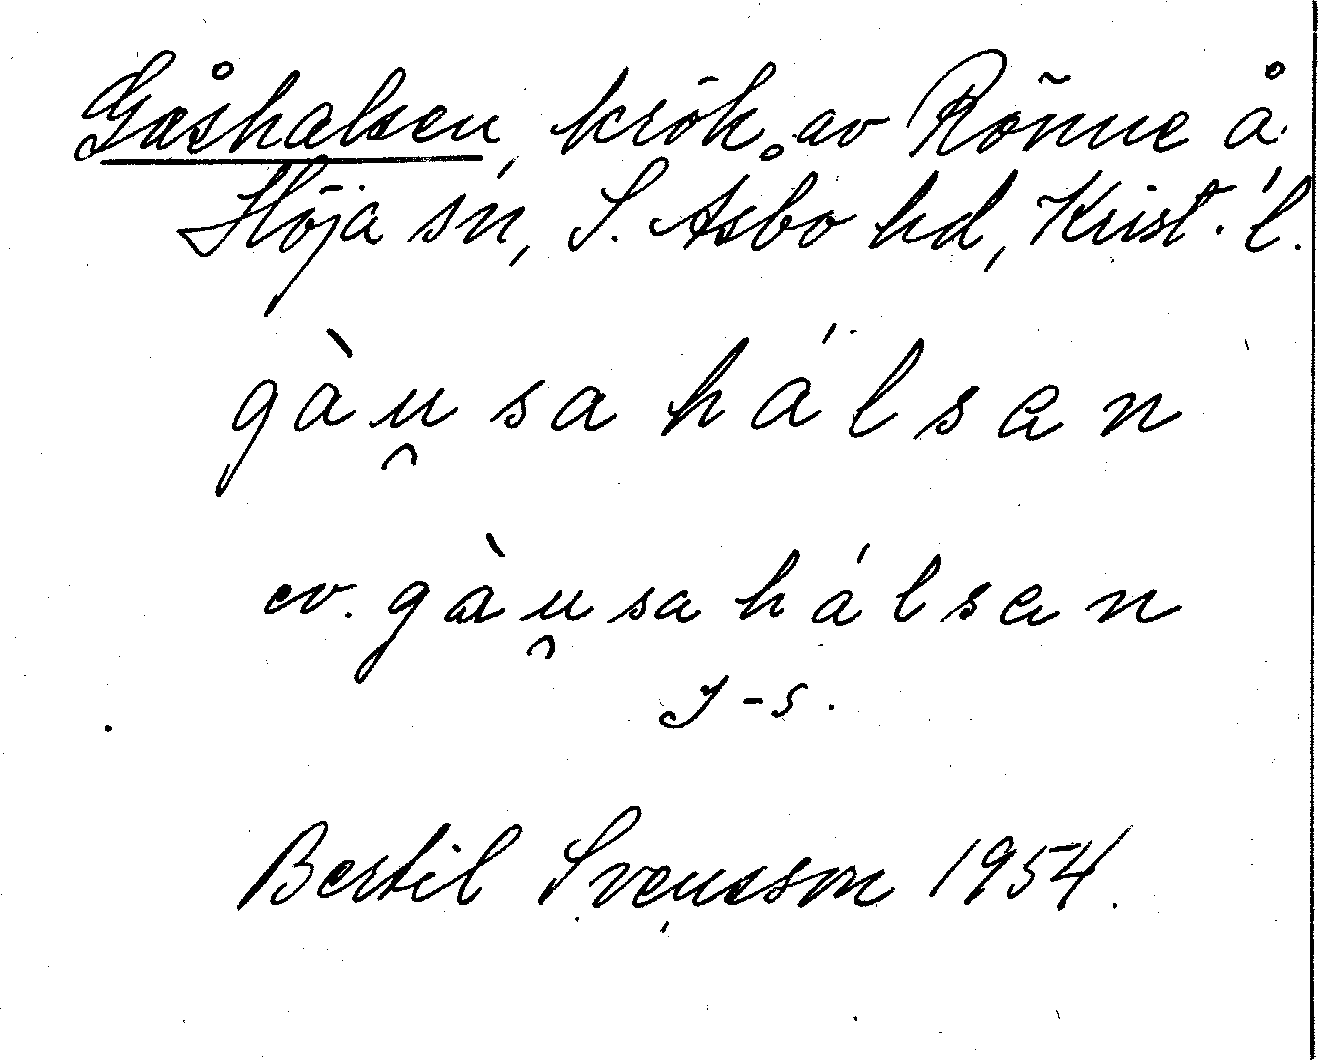 Gåshalsen, krök av Rönne å
Höja sn, S. Åsbo hd, Krist. l.
gàu̯sahálsan
ev. gàu̯sahálsan
J-s.
Bertil Svensson 1954.